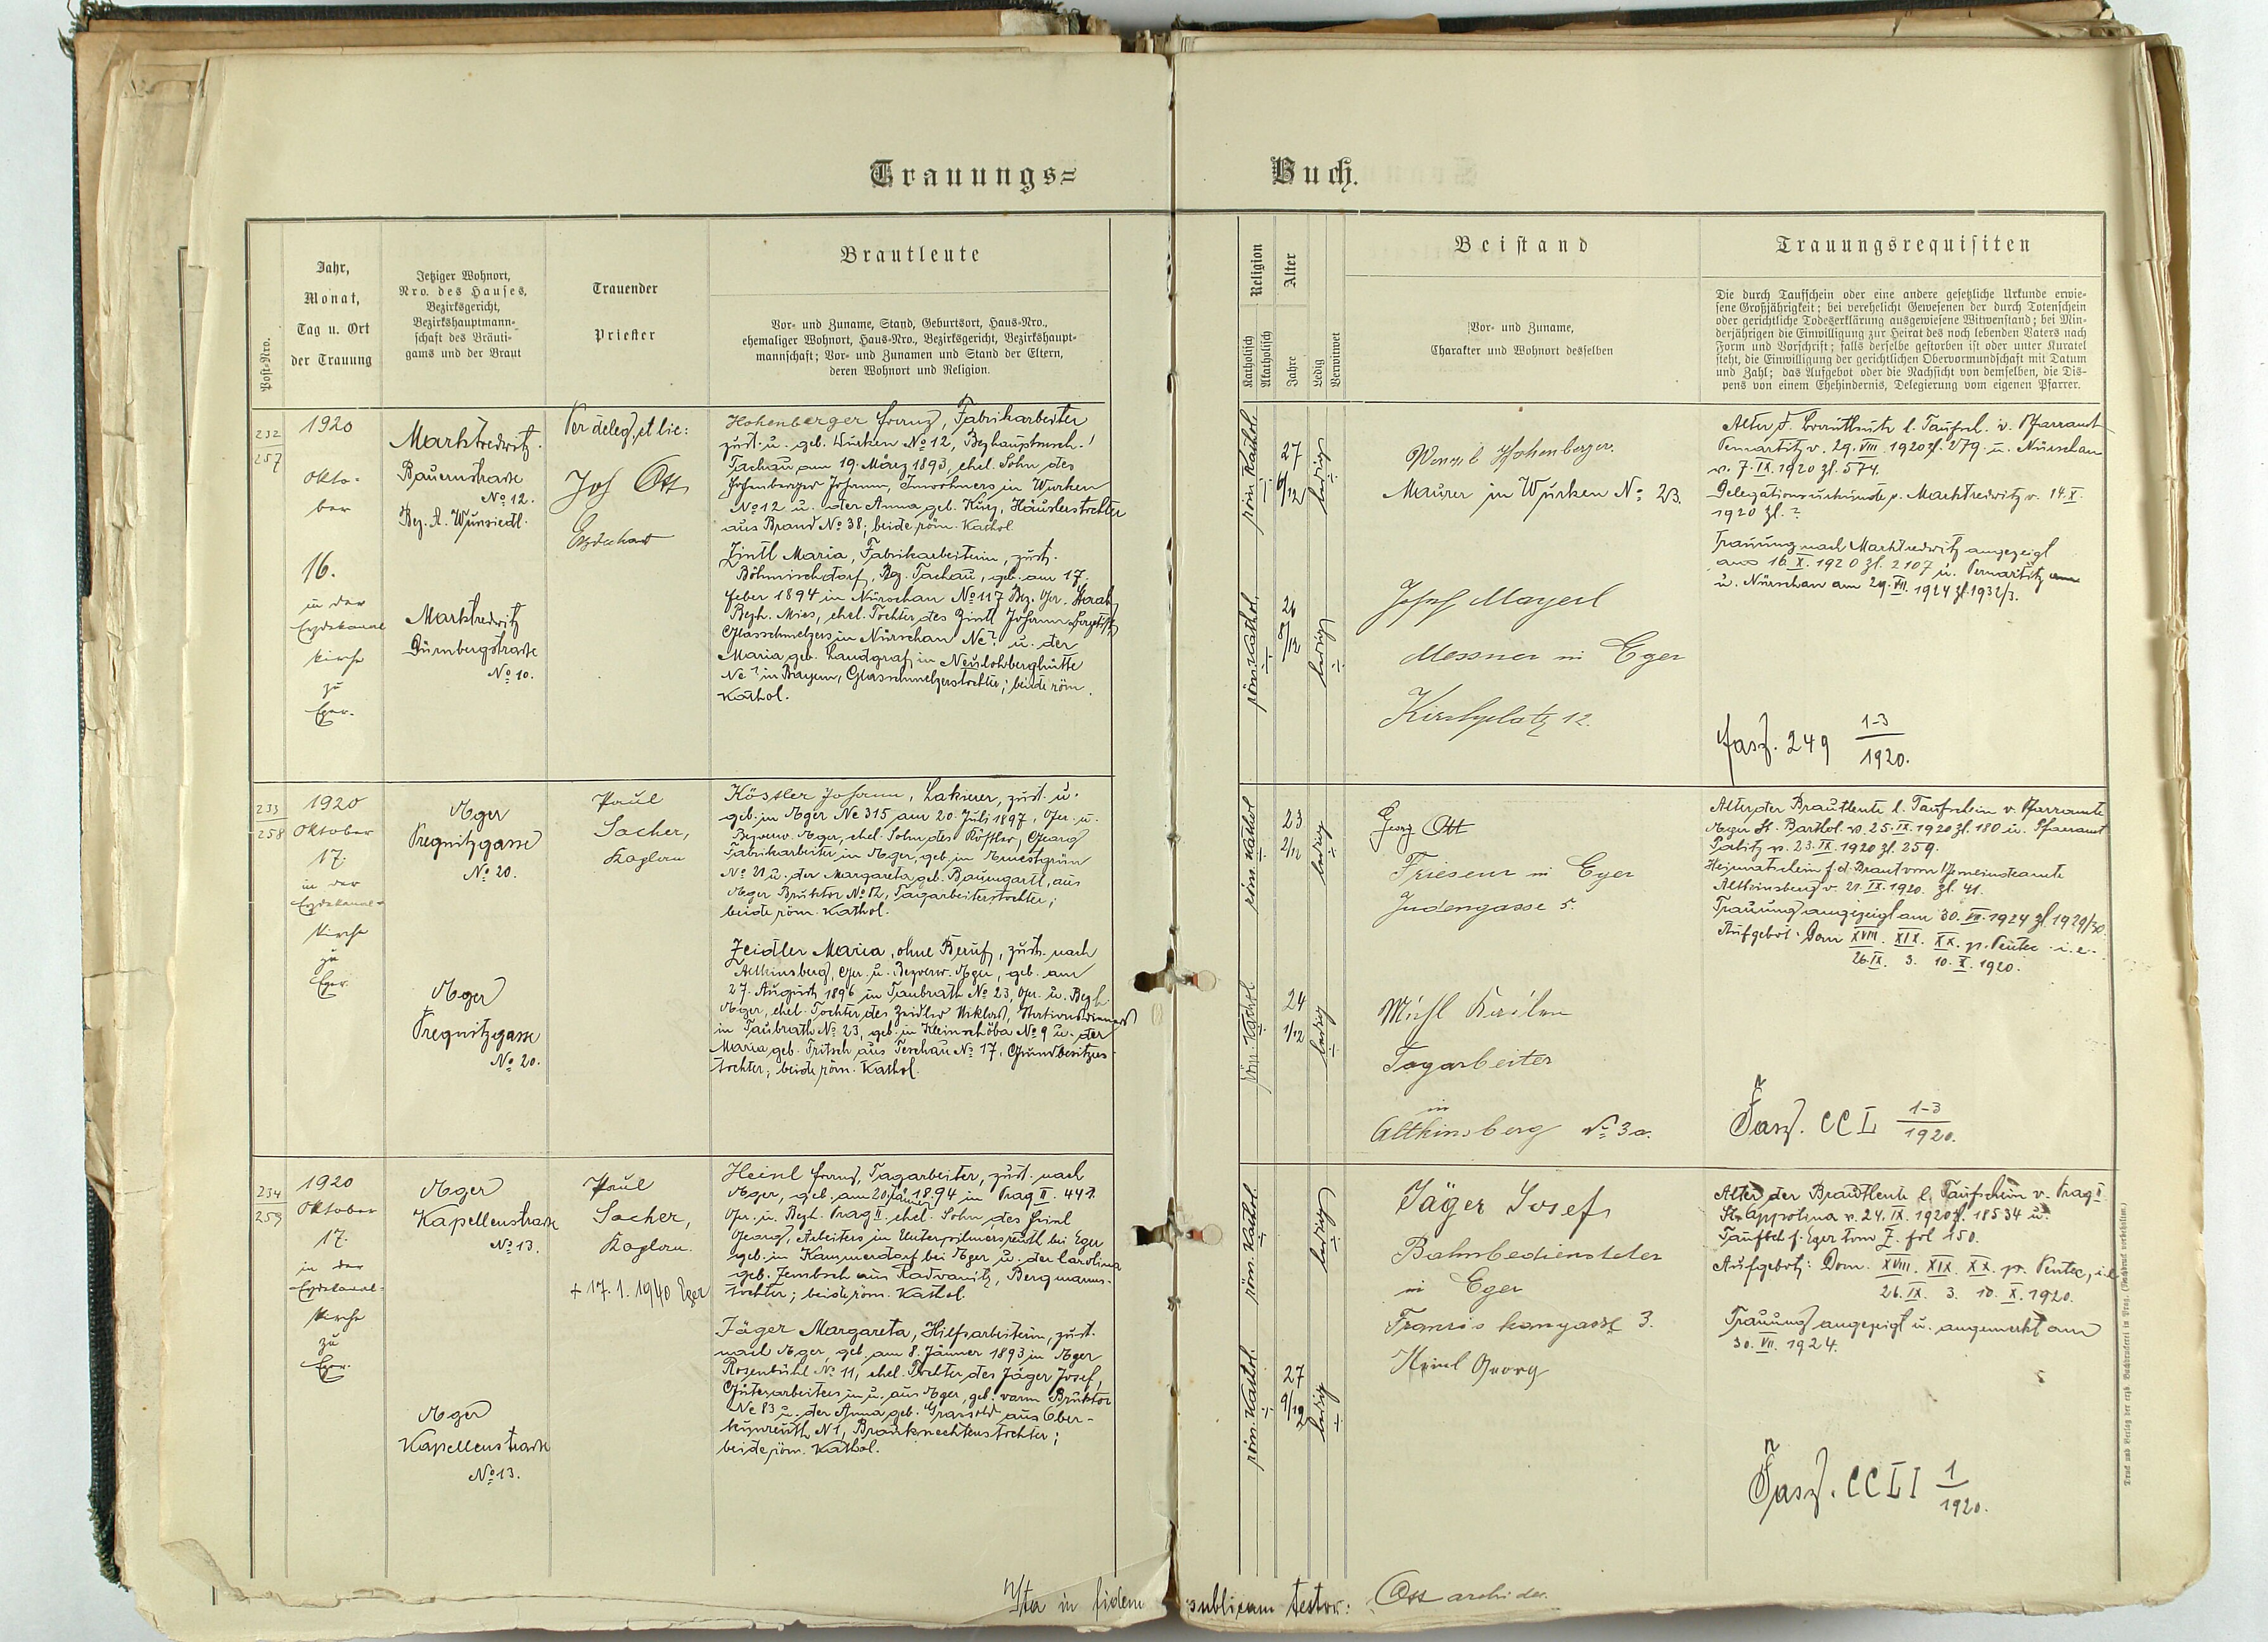 Trauungs=
Buch.
Post-Nro.
Jahr,
Monat,
Tag u. Ort
der Trauung
Jetziger Wohnort,
Nro. des Hauses,
Bezirksgericht,
Bezirkshauptmann-
schaft des Bräuti-
gams und der Braut
Trauender
Priester
Brautleute
Vor- und Zuname, Stand, Geburtsort, Haus-Nro.,
ehemaliger Wohnort, Haus-Nro., Bezirksgericht, Bezirkshaupt-
mannschaft; Vor- und Zunamen und Stand der Eltern,
deren Wohnort und Religion.
Religion
Katholisch
Akatholisch
Alter
Jahre
Ledig
Verwitwet
Beistand
Vor- und Zuname,
Charakter und Wohnort desselben
Trauungsrequisiten
Die durch Taufschein oder eine andere gesetzliche Urkunde erwie-
sene Großjährigkeit; bei verehelicht Gewesenen der durch Totenschein
oder gerichtliche Todeserklärung ausgewiesene Witwenstand; bei Min-
derjährigen die Einwilligung zur Heirat des noch lebenden Vaters nach
Form und Vorschrift; falls derselbe gestorben ist oder unter Kuratel
steht, die Einwilligung der gerichtlichen Obervormundschaft mit Datum
und Zahl; das Aufgebot oder die Nachsicht von demselben, die Dis-
pens von einem Ehehindernis, Delegierung vom eigenen Pfarrer.
232
257
1920
Okto-
ber
16.
in der
Erzdekanal
kirche
zu
Eger.
Marktredwitz.
Bauernstrasse
No 12.
Bez. A. Wunsiedl.
Marktredwitz
Dürnbergstrasse
No 10.
Per deleg. et lic:
Jos Ott
Erzdechant
Hohenberger Franz, Fabrikarbeiter
zust. u. geb. Wurken No 12, Bezhauptmsch.
Tachau am 19. März 1893, ehel. Sohn des
Hohenberger Johann, Inwohners in Wurken
No 12 u. der Anna geb. Kurz, Häuslerstochter
aus Brand No 38; beide röm. Kathol.
Zintl Maria, Fabrikarbeiterin, zust.
Böhmischdorf, Bez. Tachau, geb. am 17.
Feber 1894 in Nürschan No 117 Bez. Ger. Staab
Bezh. Mies, ehel. Tochter des Zintl Johann
Glasschmelzers in Nürschan No ? u. der
Maria geb. Landgraf in Neulohberghütte
No ? in Bayern, Glasschmelzerstochter; beide röm.
Kathol.
röm. Kathol.
27
6/12
ledig
röm. Kathol.
26
8/12
ledig
Wenzel Hohenberger.
Maurer in Wurken No 23.
Josef Mayerl
Messner in Eger
Kirchplatz 12.
Alter d. Brautleute l. Taufsch. v. Pfarramt
Pernartitz v. 29. VIII 1920 zl. 279 u. Nürschan
v. 7. IX. 1920 zl. 574.
Delegationsurkunde v. Marktredwitz v. 14. X.
1920 zl. ?
Trauung nach Marktredwitz angezeigt
am 16. X. 1920 zl. 2107 u. Pernartitz
u. Nürschan am 29. VII. 1924 zl. 1932/3.
Fasz. 249 1-3
1920.
233
258
1920
Oktober
17.
in der
Erzdekanal-
kirche
zu
Eger.
Eger
Pregnitzgasse
No 20.
Eger
Pregnitzgasse
No 20.
Paul
Sacher,
Kaplan
Köstler Johann, Lakierer, zust. u.
geb. in Eger No 315 am 20. Juli 1897, Ger. u.
Bezverw. Eger, ehel. Sohn des Köstler, Georg
Fabrikarbeiter in Eger, geb. in
No 21 u. der Margareta geb. Baumgartl, aus
Eger Bruktor No 12, Tagarbeiterstochter;
beide röm. Kathol.
Zeidler Maria, ohne Beruf, zust. nach
Altkinsberg, Ger. u. Bezverw. Eger, geb. am
27. August 1896 in Taubrath No 23, Ger. u. Bezh.
Eger, ehel. Tochter des Zeidler Niklas,
in Taubrath No 23, geb. in Kleinschöba No 9 u. der
Maria geb. Fritsch aus Teschau No 17, Grundbesitzers-
tochter; beide röm. Kathol.
röm. Kathol
23
2/12
ledig
röm. Kathol
24
1/12
ledig
Georg Ott
Friseur in Eger
Judengasse 5.
Michl
Tagarbeiter
in
Altkinsberg No 30.
Alter der Brautleute l. Taufschein v. Pfarramte
Eger St. Barthol. v. 25. IX. 1920 zl. 180 u. Pfarramt
Palitz v. 23. IX. 1920 zl. 259.
Heimatschein f. d. Braut vom Gemeindeamte
Altkinsberg v. 21. IX. 1920. zl. 41.
Trauung angezeigt am 30. VII. 1924 zl. 1929/30.
Aufgebot: Dom XVIII. XIX. XX. p. Pentec. i. e.
26. IX. 3. 10. X. 1920.
Fasz. CCL 1-3
1920.
234
259
1920
Oktober
17.
in der
Erzdekanal-
kirche
zu
Eger.
Eger
Kapellenstrasse
No 13.
Eger
Kapellenstrasse
No 13.
Paul
Sacher,
Kaplan.
+ 17. 1. 1940 Eger
Heinl Franz, Tagarbeiter, zust. nach
Eger, geb. am 20. Jänner 1894 in Prag II. 441.
Ger. u. Bezh. Prag II. ehel. Sohn des Heinl
Georg, Arbeiters in Unterpilmersreuth bei Eger
geb. in Kammerdorf bei Eger u. der Carolina
geb. Jembsch aus Radvanitz, Bergmanns-
tochter; beide röm. Kathol.
Jäger Margareta, Hilfsarbeiterin, zust.
nach Eger, geb. am 8. Jänner 1893 in Eger
Rosenbühl No 11, ehel. Tochter des Jäger Josef,
Güterarbeiters in u. aus Eger, geb. vorm Bruktor
No 83 u. der Anna geb. Grassold aus Ober-
No 1, Brauknechtenstochter;
beide röm. Kathol.
röm. Kathol.
ledig
röm. Kathol.
27
9/12
ledig
Jäger Josef
Bahnbediensteter
in Eger
Franziskanygasse 3.
Heinl Georg
Alter der Brautleute l. Taufschein v. Prag II
St. Appolina v. 24. IX. 1920 zl. 18534 u.
Taufbch f. Eger tom Z. fol 150.
Aufgebot: Dom. XVIII. XIX. XX. p. Pentec, i. e
26. IX. 3. 10. X. 1920.
Trauung angezeigt u. angemerkt am
30. VII. 1924.
Fasz. CCLI 1
1920.
Ita in fidem publicam testor: Ott archidec.
Druck und Verlag der erzb. Buchdruckerei in Prag. (Nachdruck vorbehalten.)